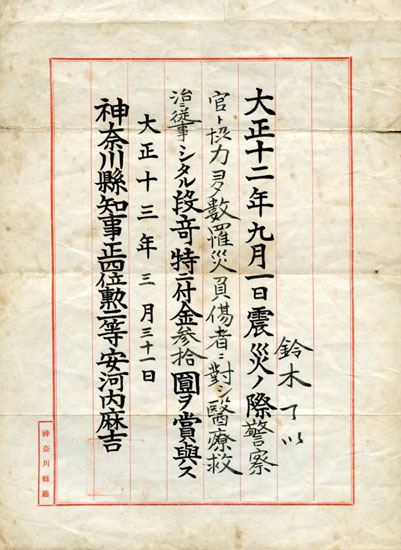 鈴木了以
大正十二年九月一日震災ノ際警察
官ト協力多数罹災負傷者ニ對シ醫療救
治ニ從事シタル段竒特ニ付金参拾圓ヲ賞與ス
大正十三年三月三十一日
神奈川縣知事正四位勲二等安河内麻吉
神奈川縣廳